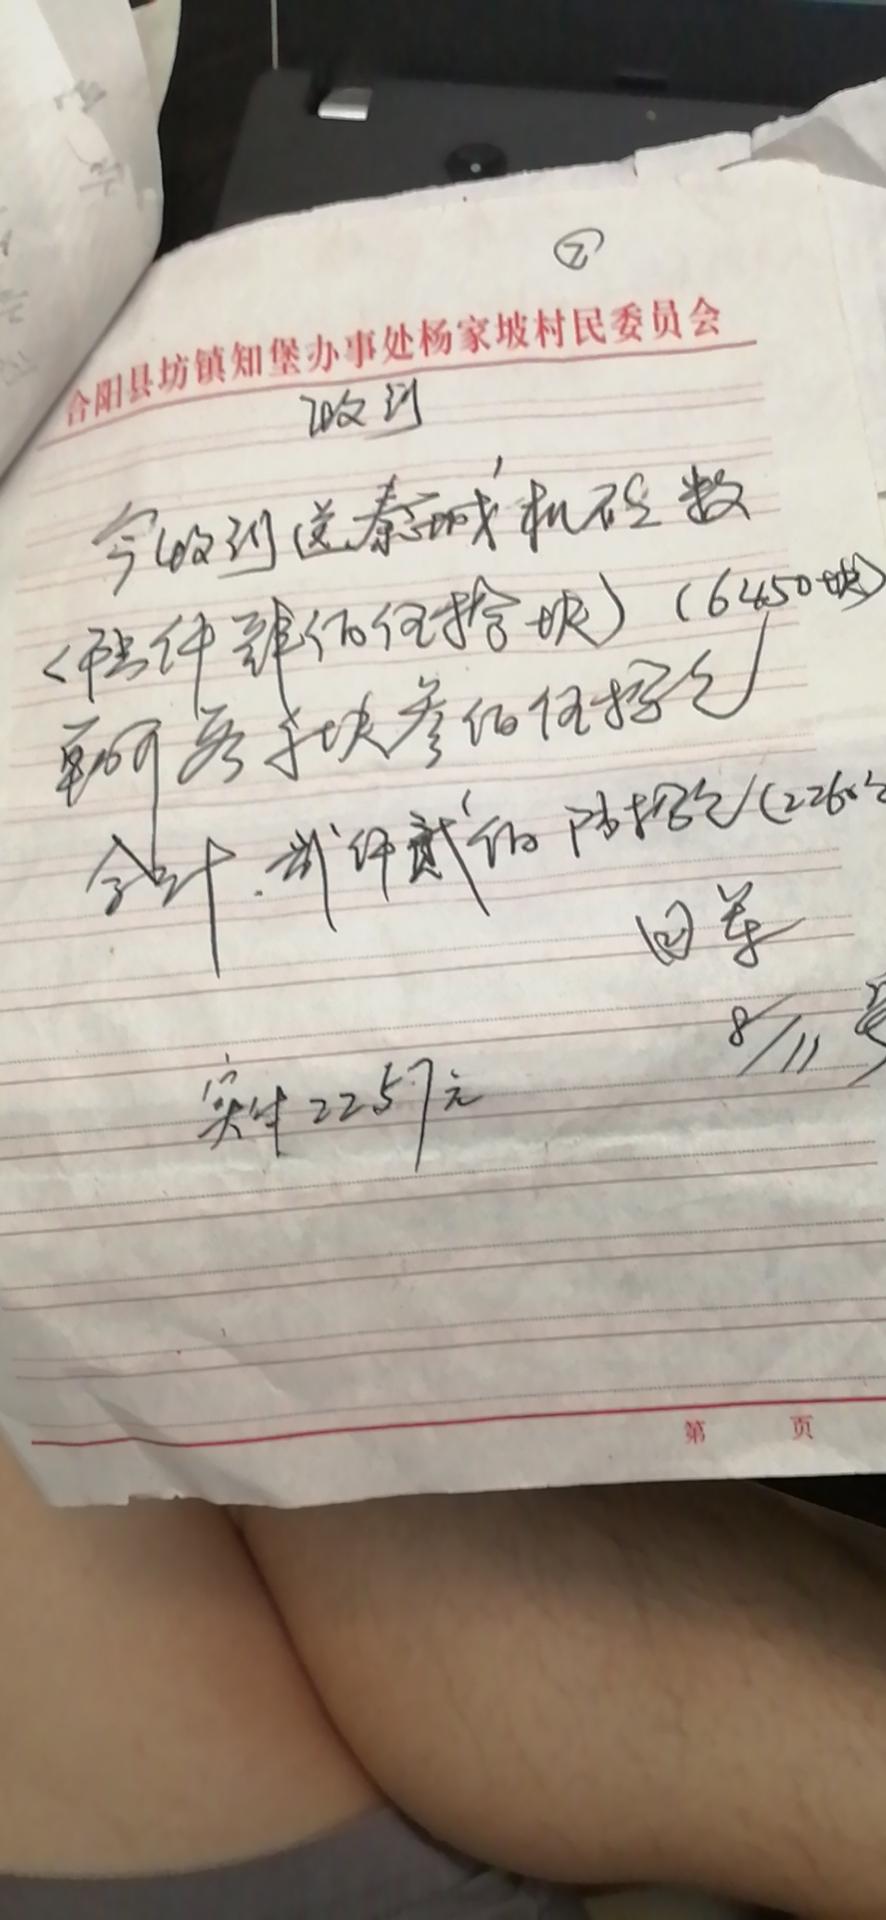 ②
合阳县坊镇知堡办事处杨家坡村民委员会
收到
今收到送秦城机砖数
(陆仟肆佰伍拾块) (6450块)
每千块叁佰伍拾元
合计.贰仟贰佰陆拾元(2260元
8/11号
实付2257元
第 页